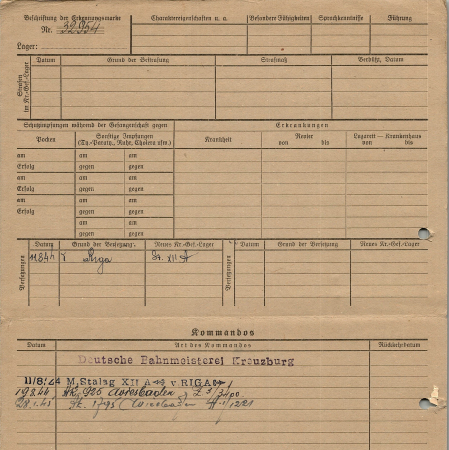 Beschriftung der Erkennungsmarke
Nr. 32954
Lager:
Charaktereigenschaften u. a. Besondere Fähigkeiten Sprachkenntnisse Führung
Strafen im Kr.-Gef.-Lager
Datum Grund der Bestrafung Strafmaß Verbüßt, Datum
Schutzimpfungen während der Gefangenschaft gegen
Erkrankungen
Pocken Sonstige Impfungen (Ty.-Paraty., Ruhr, Cholera usw.) Krankheit Revier von bis Lazarett — Krankenhaus von bis
am am am
Erfolg gegen gegen
am am am
Erfolg gegen gegen
am am am
Erfolg gegen gegen
am am
gegen gegen
Versetzungen
Datum Grund der Versetzung Neues Kr.-Gef.-Lager Datum Grund der Versetzung Neues Kr.-Gef.-Lager
11844 v Riga St. XII A
Versetzungen
Kommandos
Datum Art des Kommandos Rückkehrdatum
Deutsche Bahnmeisterei Kreuzburg
11/8/44 M. Stalag XII A v. RIGA
19.8.44 Ak. 925 Wiesbaden
28.1.45 Ak. 1795 Wiesbaden